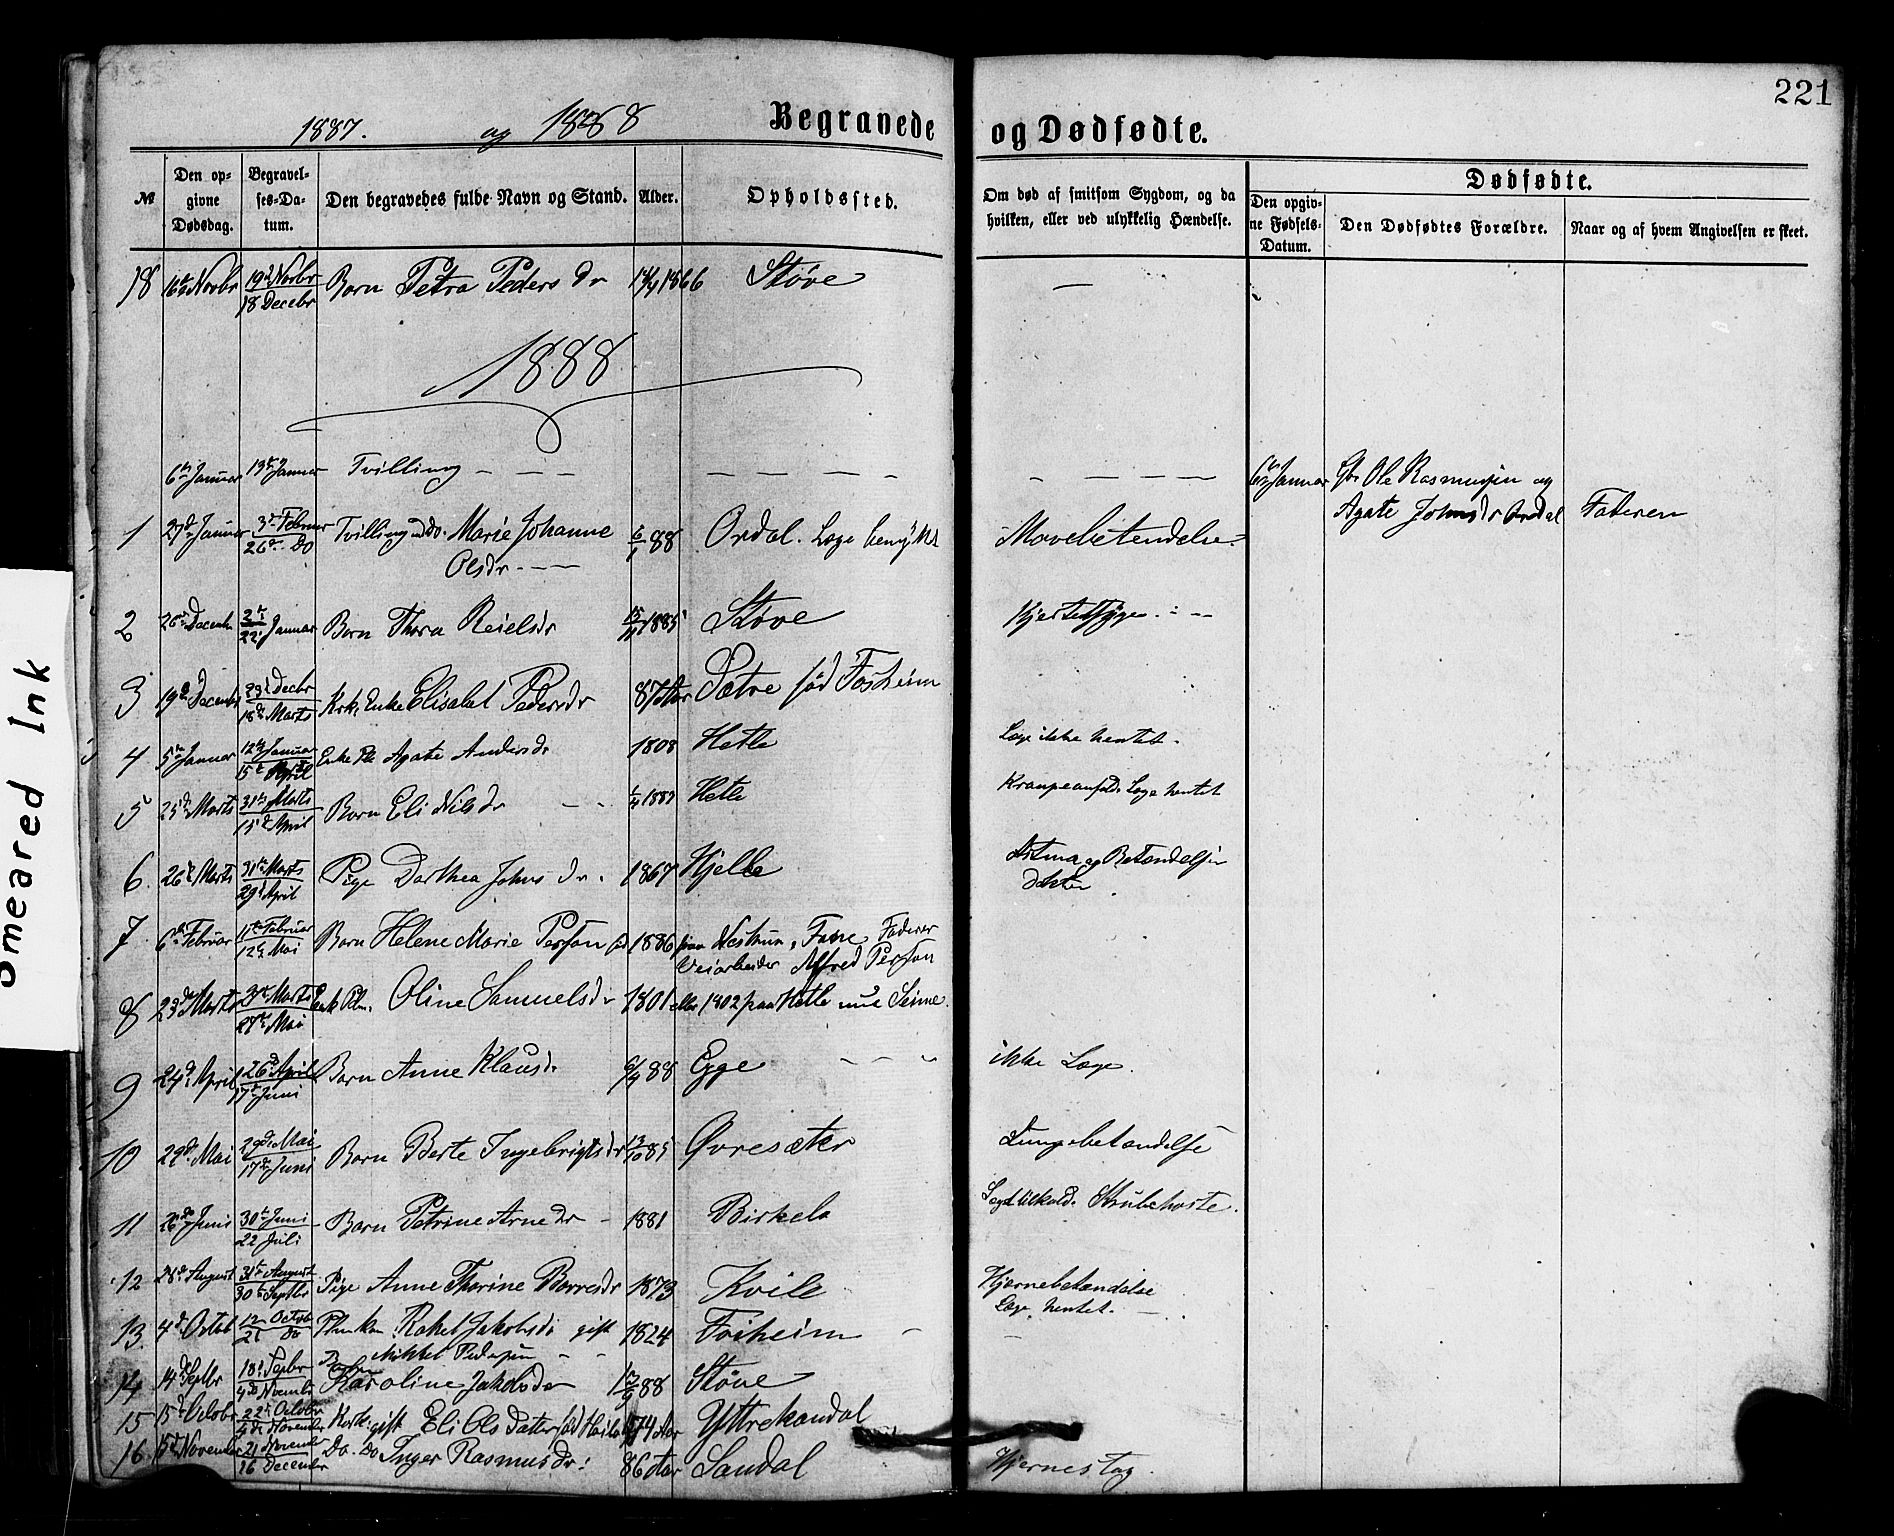 221
1887. og 1888 Begravede og Dødfødte.
№ Den opgivne Dødsdag. Begravelses-Datum. Den begravedes fulde Navn og Stand. Alder. Opholdssted. Om død af smitsom Sygdom, og da hvilken, eller ved ulykkelig Hændelse. Dødfødte.
Den opgivne Fødsels-Datum. Den Dødfødtes Forældre. Naar og af hvem Angivelsen er skeet.
18 16 Novbr 19 Novbr 18 Decebr Barn Petra Peders dr 1866 Støve —
1888
6 Januar 13 Januar Tvilling — — — — — — — — — — — 6 Januar Ole Rasmussen og
Agate Johnsdr Ordal Faderen
1 27 Januar 3 Februar 26 Do Tvilling Marie Johanne 6/1 88 Ordal. Læge benyttet Mavebetendelse
Olsdr - — —
2 26 Decembr 3 22 Januar Barn Thora Reielsdr 1885 Støve Hjertesyge
3 19 Decembr 23 Decbr 18 Marts Enke Elisabet Pedersdr 87 Aar Sætre fød Fosheim
4 5 Januar 12 Januar 15 April Enke Agate Andersdr 1808 Hetle Læge ikke hentet.
5 25 Marts 31 Marts 15 April Barn Eli Nilsdr Hetle Krampeanfald Læge hentet
6. 26 Marts 31 Marts 29 April Pige Dorthea Johns dr. 1867 Hjelle Astma og Betændelse
7 6 Februar 11 Februar 12 Mai Barn Helene Marie Person 1886 paa Fader
Veiarbeider Alfred Person
8 23 Marts 31 Marts 27 Mai Oline Samuelsdr 1801 eller 1802 paa Hetle
9 24 April 26 April 17 Juni Barn Anne Klausdr 6/4 88 Egge ikke Læge.
10 29 Mai 29 Mai 17 Juni Barn Berte Ingebrigtsdr 13/10 85 Øvresæter Lungebetændelse
11 26 Juni 30 Juni 22 Juli Barn Petrine Arnedr 1881 Birkelo Strubehoste.
12 28 August 31 August 30 Septbr Pige Anne Thorine Børresdr 1873 Kvile Hjernebetændelse
Læge hentet.
13. 4 Octob 12 Octob 21 Do Rakel Jakobsdr gift 1824 Fosheim —
Mikkel Pedersen
14 14 Septbr 18 Septbr 4 Novembr Barn Karoline Jakobsdr 88 Støve
15 15 Octobr 22 Octobr 4 November gift Eli Ols Datter fød 74 Aar Yttrekandal
16. 15 November 21 November 16 December Do. Do Inger Rasmusdr: 86 Aar Sandal Hjerneslag.
Smeared Ink